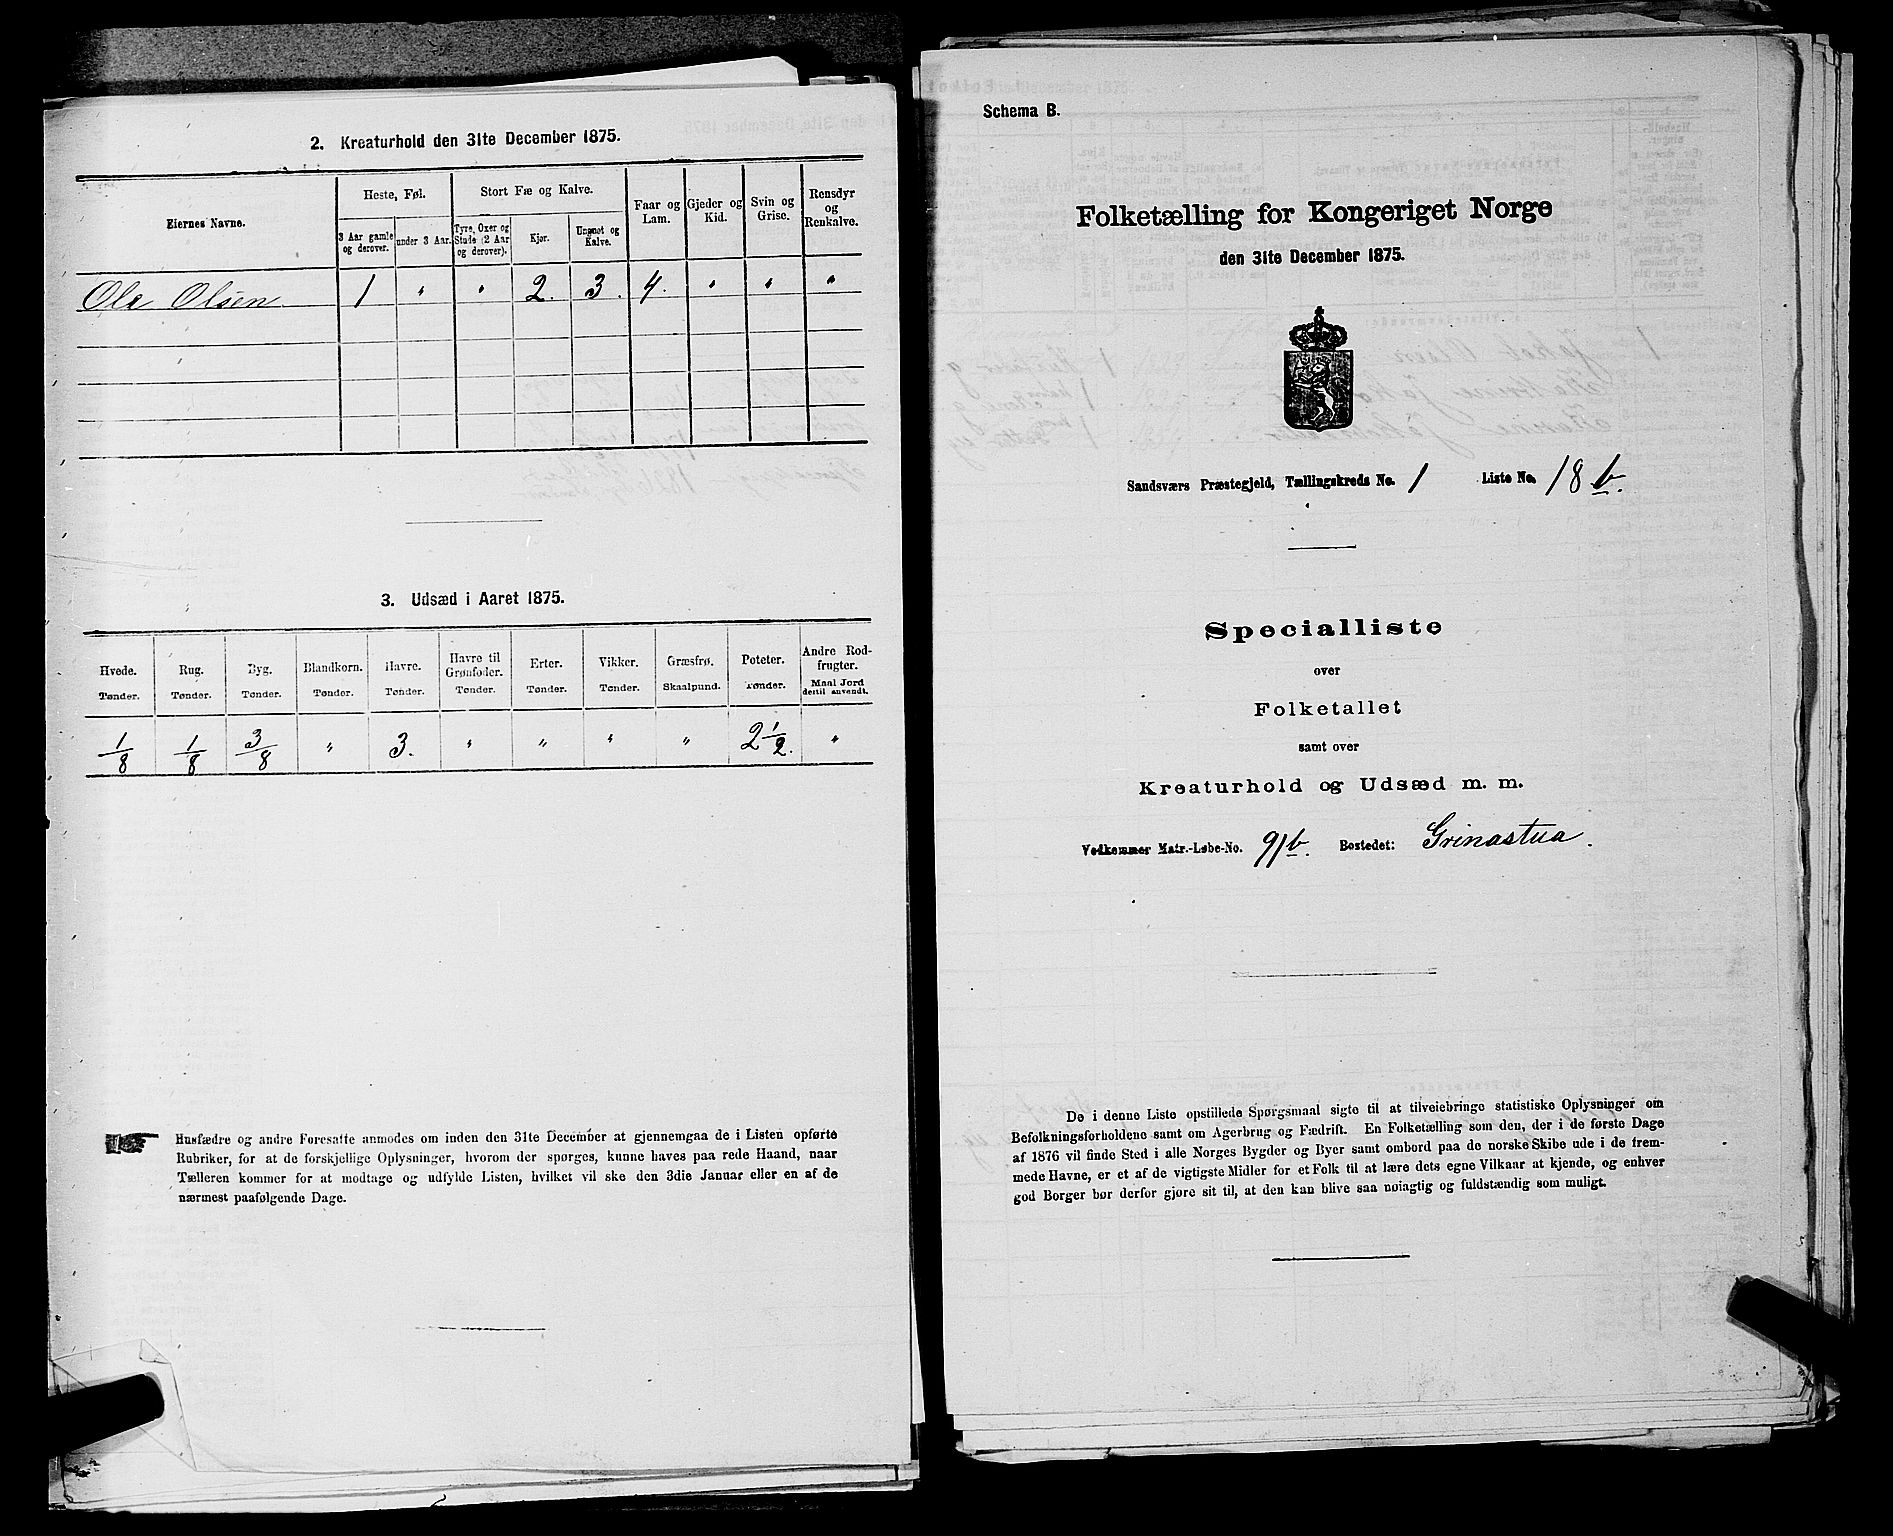 2. Kreaturhold den 31te December 1875.
Eiernes Navne.
Heste, Føl.
3 Aar gamle og derover.
under 3 Aar.
Stort Fæ og Kalve.
Tyre, Oxer og Stude (2 Aar og derover).
Kjør.
Ungnøt og Kalve.
Faar og Lam.
Gjeder og Kid.
Svin og Grise.
Rensdyr og Renkalve.
Ole Olsen 1 " " 2. 3. 4. " " "
3. Udsæd i Aaret 1875.
Hvede. Rug. Byg. Blandkorn. Havre. Havre til Grønfoder. Erter. Vikker. Græsfrø. Poteter. Andre Rodfrugter.
Tønder. Tønder. Tønder. Tønder. Tønder. Tønder. Tønder. Tønder. Skaalpund. Tønder. Maal Jord dertil anvendt.
1/8 1/8 3/8 " 3. " " " " 2 1/2. "
Husfædre og andre Foresatte anmodes om inden den 31te December at gjennemgaa de i Listen opførte
Rubriker, for at de forskjellige Oplysninger, hvorom der spørges, kunne haves paa rede Haand, naar
Tælleren kommer for at modtage og udfylde Listen, hvilket vil ske den 3die Januar eller en af de
nærmest paafølgende Dage.
Schema B.
Folketælling for Kongeriget Norge
den 31te December 1875.
Sandsværs Præstegjeld, Tællingskreds No. 1 Liste No. 18 b.
Specialliste
over
Folketallet
samt over
Kreaturhold og Udsæd m. m.
Vedkommer Matr.-Løbe-No. 91b. Bostedet: Grinastua.
De i denne Liste opstillede Spørgsmaal sigte til at tilveiebringe statistiske Oplysninger om
Befolkningsforholdene samt om Agerbrug og Fædrift. En Folketælling som den, der i de første Dage
af 1876 vil finde Sted i alle Norges Bygder og Byer samt ombord paa de norske Skibe ude i de frem-
mede Havne, er et af de vigtigste Midler for et Folk til at lære dets egne Vilkaar at kjende, og enhver
god Borger bør derfor gjøre sit til, at den kan blive saa nøiagtig og fuldstændig som muligt.